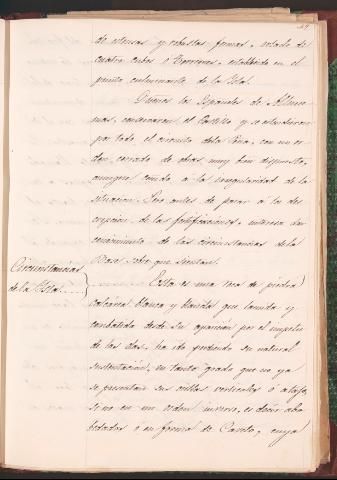 de estensas y robustas formas, rodado de
cuatro cubos ó Torreones, establecido en el
punto culminante de la Isla.
Dueños los Españoles de Alhuce-
mas, conservaron el Castillo y se estendieron
por todo el circuito de la Peña, con un or-
den cerrado de obras, muy bien dispuesto,
aunque ceñido á la irregularidad de la
situacion. Pero antes de pasar á la des
cripcion de las fortificaciones, interesa dar
conocimiento de las circunstancias de la
Base sobre que sientan.
Circunstancias
de la Isla
Esta es una roca de piedra
calcárea blanca y blanda que lamida y
combatida desde su aparicion por el impetu
de las olas, ha ido perdiendo su natural
sustentacion, en tanto grado que no ya
se presentan sus orillas verticales ó a tajo,
sino en un orden inverso, es decir abo
bedadas ó en forma de Caveto, cuya